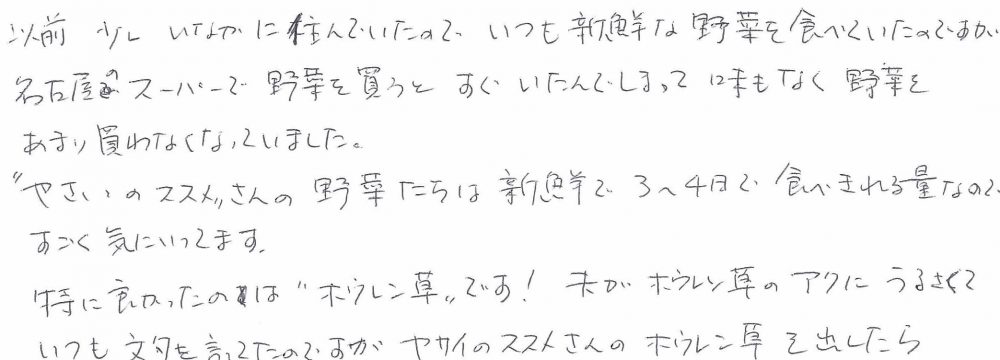 以前 少し いなかに住んでいたので いつも新鮮な野菜を食べていたのですが
名古屋のスーパーで野菜を買うと すぐいたんでしまって 味もなく 野菜を
あまり買わなくなっていました。
"やさいのススメ"さんの野菜たちは 新鮮で 3〜4日で食べきれる量なので
すごく気にいってます。
特に良かったのは "ホウレン草"です! 夫がホウレン草のアクにうるさくて
いつも文句を言ってたのですが ヤサイのススメさんのホウレン草を出したら